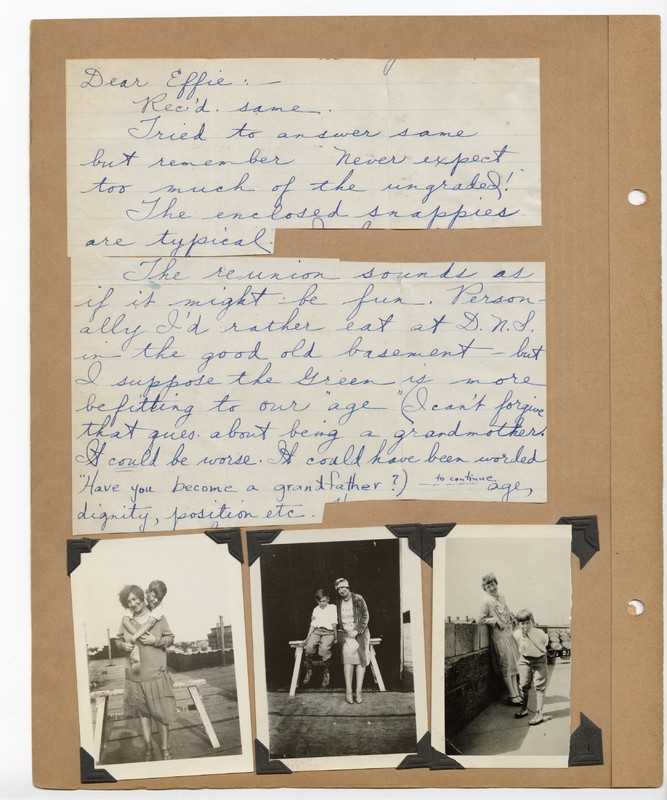 Dear Effie: —
Rec'd. same.
Tried to answer same
but remember "Never expect
too much of the ungraded!"
The enclosed snappies
are typical.
The reunion sounds as
if it might be fun. Person-
ally I'd rather eat at D.N.S.
in the good old basement — but
I suppose the Green is more
befitting to our "age" (I can't forgive
that ques. about being a grandmother.
It could be worse. It could have been worded
"Have you become a grandfather?) to continue age,
dignity, position etc.